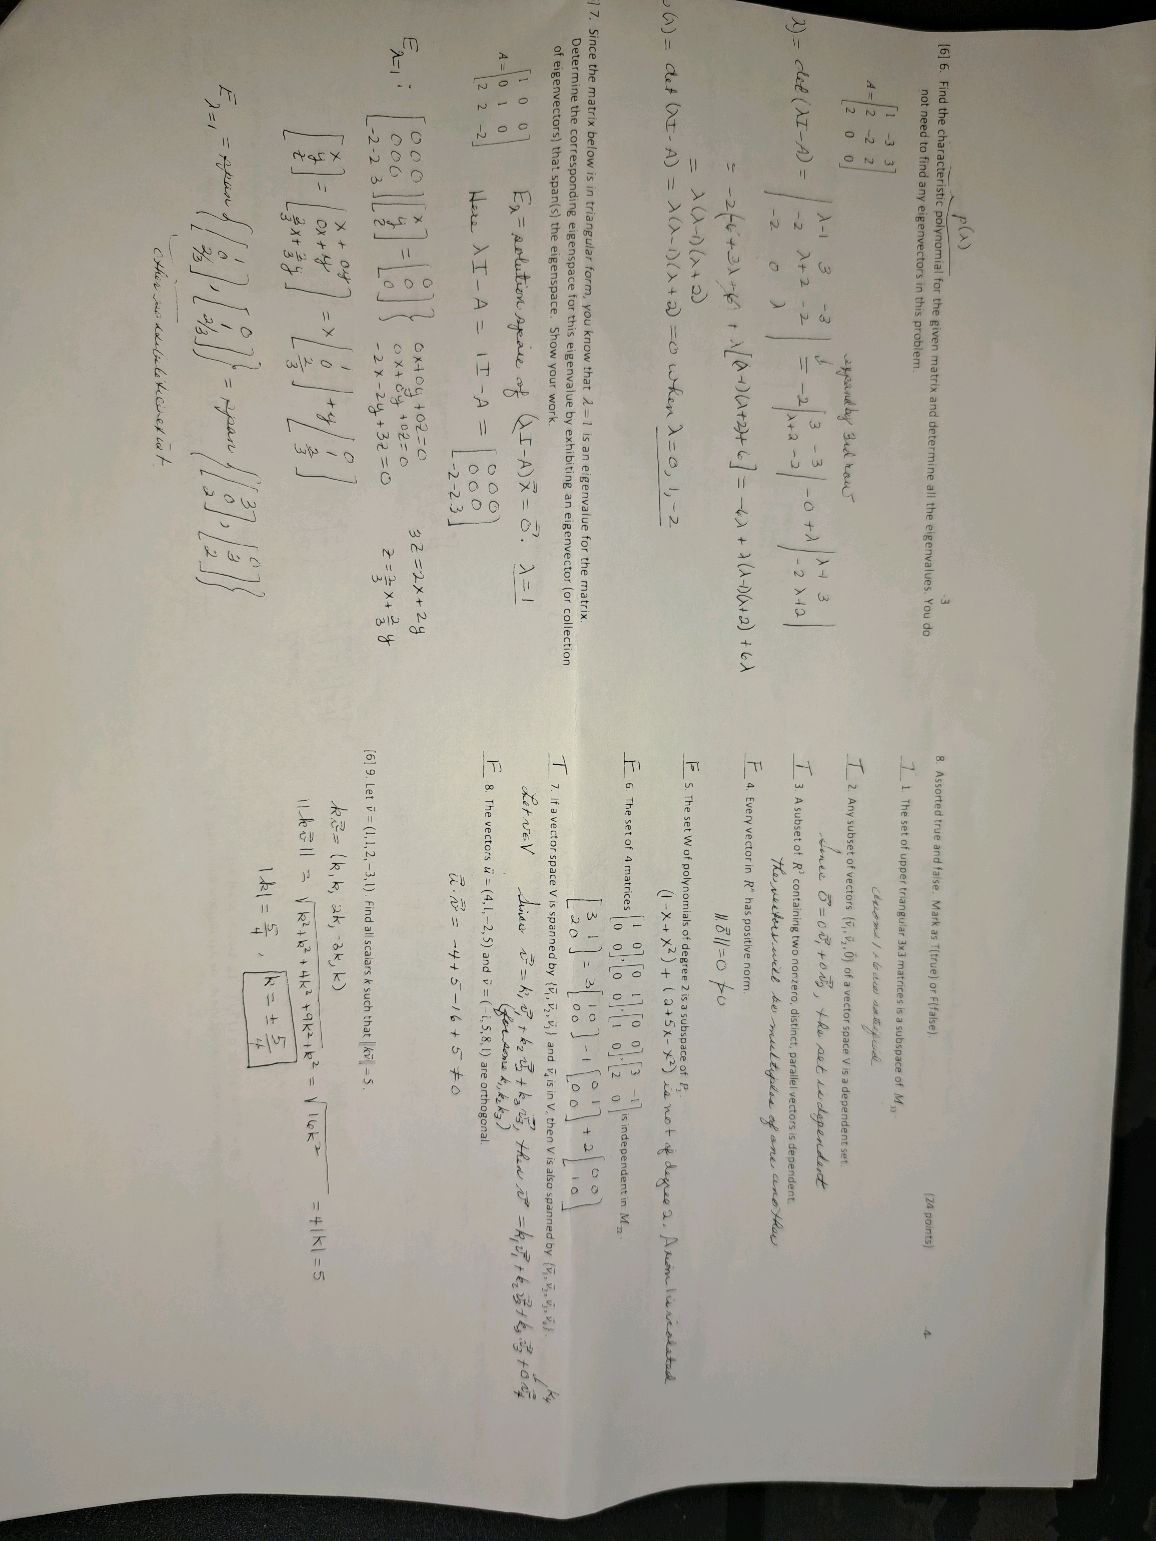 p(λ)
-3
[6] 6. Find the characteristic polynomial for the given matrix and determine all the eigenvalues. You do
not need to find any eigenvectors in this problem.
A = [1 -3 3; 2 -2 2; 2 0 0]
expand by 3rd row
λ) = det(λI-A) = |λ-1 3 -3; -2 λ+2 -2; -2 0 λ| = -2|3 -3; λ+2 -2| -0 +λ|λ-1 3; -2 λ+2|
= -2[-6+3λ+6] + λ[(λ-1)(λ+2)+6] = -6λ + λ(λ-1)(λ+2) + 6λ
= λ(λ-1)(λ+2)
p(λ) = det(λI-A) = λ(λ-1)(λ+2) = 0 when λ = 0, 1, -2
] 7. Since the matrix below is in triangular form, you know that λ = 1 is an eigenvalue for the matrix.
Determine the corresponding eigenspace for this eigenvalue by exhibiting an eigenvector (or collection
of eigenvectors) that span(s) the eigenspace. Show your work.
A = [1 0 0; 0 1 0; 2 2 -2] Eλ = solution space of (λI-A)x⃗ = 0⃗. λ=1
Here λI-A = 1I-A = [0 0 0; 0 0 0; -2 -2 3]
Eλ=1 : [0 0 0; 0 0 0; -2 -2 3] [x; y; z] = [0; 0; 0] }
0x+0y+0z=0
0x+0y+0z=0
-2x-2y+3z=0
3z=2x+2y
z=2/3 x+2/3 y
[x; y; z] = [x+0y; 0x+y; 2/3x+2/3y] = x[1; 0; 2/3] + y[0; 1; 2/3]
Eλ=1 = span {[1; 0; 2/3], [0; 1; 2/3]} = span {[3; 0; 2], [0; 3; 2]}
other possibilities exist
8. Assorted true and false. Mark as T(true) or F(false). (24 points) 4
T 1. The set of upper triangular 3x3 matrices is a subspace of M33
axioms 1 & 6 are satisfied
T 2. Any subset of vectors {v⃗1, v⃗2, 0⃗} of a vector space V is a dependent set.
Since 0⃗ = 0v⃗1 + 0v⃗2, the set is dependent
T 3. A subset of R³ containing two nonzero, distinct, parallel vectors is dependent.
The vectors will be multiples of one another
F 4. Every vector in Rⁿ has positive norm.
||0⃗||=0 ≯0
F 5. The set W of polynomials of degree 2 is a subspace of P2.
(1-x+x²)+(2+5x-x²) is not of degree 2. Axiom 1 is violated
F 6. The set of 4 matrices [1 0; 0 0], [0 1; 0 0], [0 0; 1 0], [3 -1; 2 0] is independent in M22
[3 1; 2 0] = 3[1 0; 0 0] -1[0 1; 0 0] + 2[0 0; 1 0]
T 7. If a vector space V is spanned by {v⃗1, v⃗2, v⃗3} and v⃗4 is in V, then V is also spanned by {v⃗1, v⃗2, v⃗3, v⃗4}.
k4
Let v∈V Since v⃗ = k1v⃗1+k2v⃗2+k3v⃗3, then v⃗ = k1v⃗1+k2v⃗2+k3v⃗3+0v⃗4
(for some k1, k2, k3)
F 8. The vectors u⃗ = (4,1,-2,5) and v⃗ = (-1,5,8,1) are orthogonal.
u⃗·v⃗ = -4+5-16+5 ≠0
[6] 9. Let v⃗ = (1,1,2,-3,1). Find all scalars k such that ||kv⃗|| = 5.
kv⃗ = (k, k, 2k, -3k, k)
||kv⃗|| = √(k²+k²+4k²+9k²+k²) = √(16k²) = 4|k| = 5
|k| = 5/4, k = ± 5/4